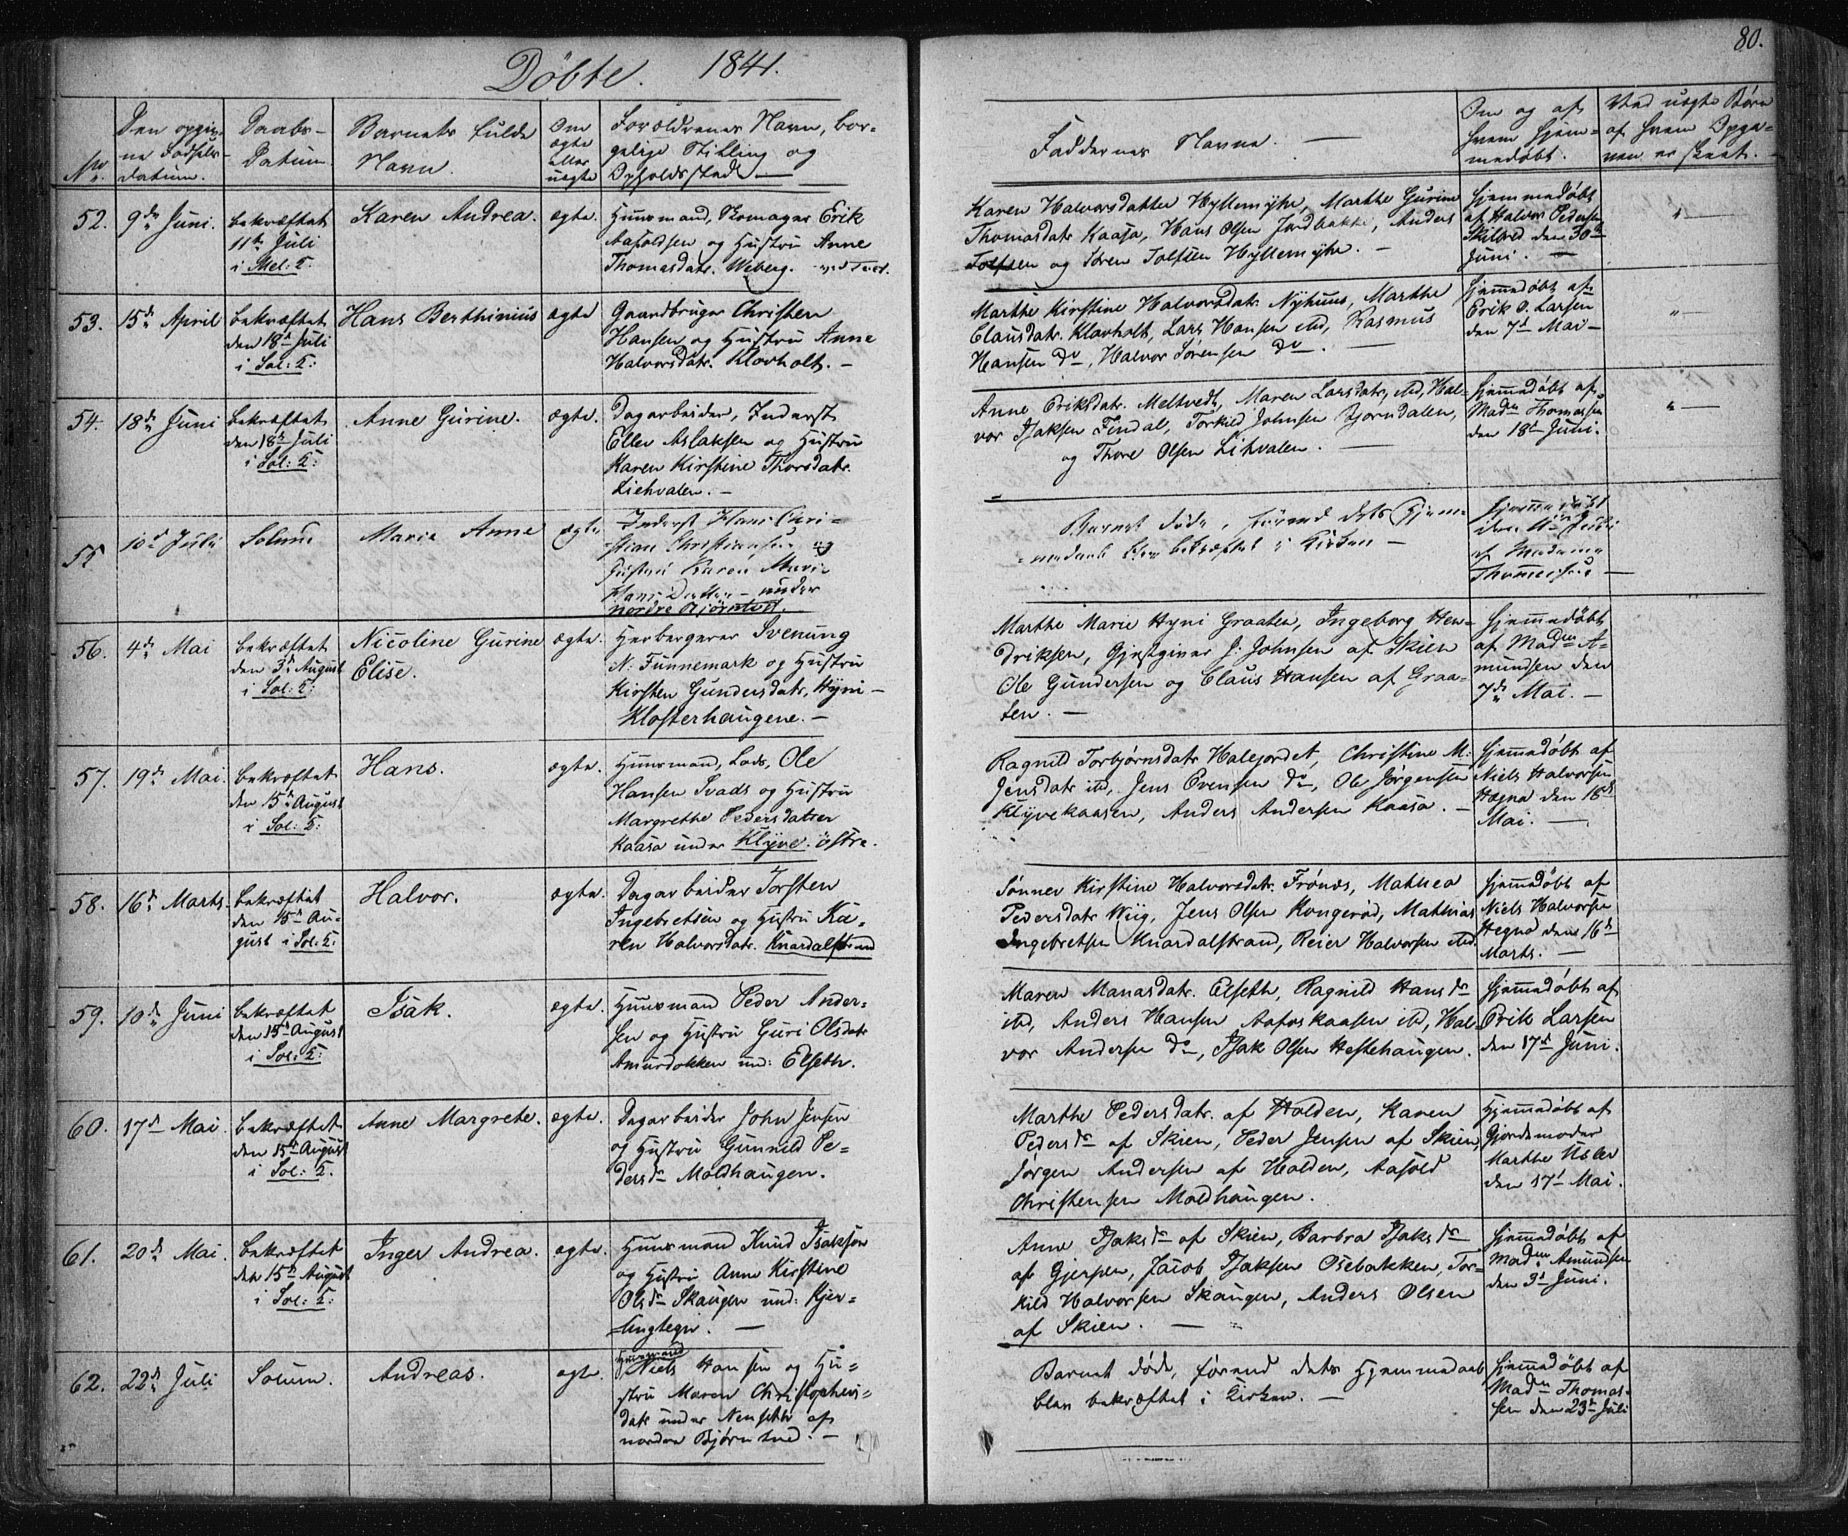 80.
Döbte. 1841.
No.
Den opgiv-
ne Fødsels-
datum.
Daabs-
Datum.
Barnets fulde
Navn.
Om
ægte
eller
uægte
Forældrenes Navn, bor-
gerlige Stilling og
Opholdssted.
Faddernes Navne. —
Om og af
hvem hjem-
medøbt.
Ved uægte Børn
af hvem Opga-
ven er skeet.
52.
9de Juni.
bekræftet
11te Juli
i Mel: K.
Karen Andrea.
ægte.
Huusmand, Erik
Aasoldsen og Hustru Anne
Thomasdatr. Weberg.
Karen Halvorsdatter Hyllemyhr, Marthe Gurine
Thomasdatr Kaasa, Hans Olsen Jordbakke, Anders
Tolfsen og Søren Tolfsen Hyllemyhr. —
Hjemmedøbt
af Halvor Pedersen
Skilbred den 30te
Juni. —
" —
53.
15de April
bekræftet
den 18de Juli
i Sol: K:
Hans Berthinius
ægte
Gaardbruger Christen
Hansen og Hustru Anne
Halvorsdatr. Klovholt. —
Marthe Kirstine Halvorsdatr. Nyhuus, Marthe
Clausdatr. Klovholt, Lars Hansen ibd, Rasmus
Hansen do, Halvor Sørensen do. —
Hjemmedøbt af
Erik O. Larsen
den 7de Mai —
" —
54.
18de Juni
bekræftet
den 18de Juli
i Sol: K:
Anne Gurine.
ægte.
Dagarbeider, Inderst
Ellev Aslaksen og Hustru
Karen Kirstine Thorsdatr.
Liehvalen. —
Anne Eriksdatr. Meltvedt, Maren Larsdatr, ibd, Hal-
vor Isaksen Findal, Torkild Johnsen Bjorndalen,
og Thore Olsen Lihvalen. —
Hjemmedøbt af
Madn Thomassen
den 18de Juni.
" —
55
10de Juli
Solum
Maria Anne
ægte
Inderst Hans Chri-
stian Christiansen og
Hustru Karen Marie
Hans Datter — under
nordre Bjørntvet.
Barnet døde, førend dets Hjem-
medaab blev bekræftet i Kirken —
Hjemmedøbt
den 11te Juli
af Madame
Thomassen —
56.
4de Mai
bekræftet
den 3de August
i Sol: K:
Nicoline Gurine
Elise.
ægte.
Herbergerer Svenung
N. Funnemark og Hustru
Kirsten Gundersdatr, Hyni —
Klosterhaugene. —
Marthe Marie Hyni Graaten, Ingeborg Hen-
driksen, Gjestgiver J. Johnsen af Skien
Ole Gundersen og Claus Hansen af Graa-
ten. —
Hjemmedøbt
af Madn A-
mundsen den
7de Mai. —
57.
19de Mai.
bekræftet
den 15de August
i Sol: K:
Hans.
ægte.
Huusmand, Lods, Ole
Hansen Svads og Hustru
Margrethe Pedersdatter
Kaasa under Klyve østre.
Ragnild Torbjørnsdatr Halejordet, Christine M.
Jensdatr ibd, Jens Evensen do, Ole Jørgensen
Klyvekaasen, Anders Andersen Kaasa. —
Hjemmedøbt af
Niels Halvorsen
Hegna den 18de
Mai. —
58.
16de Marts.
bekræftet
den 15de Au-
gust i Sol: K:
Halvor.
ægte.
Dagarbeider Torsten
Ingebretsen og Hustru Ka-
ren Halvorsdatr. Knardalstrand
Sønner Kirstine Halvorsdatr. Frönæs, Mathea
Pedersdatr Wiig, Jens Olsen Kongerød, Mathias
Ingebretsen Knardalstrand, Reier Halvorsen ibd.
Hjemmedøbt af
Niels Halvorsen
Hegna den 16de
Marts. —
59.
10de Juni
bekræftet
den 15de August
i Sol: K:
Isak.
ægte.
Huusmand Peder Ander-
sen og Hustru Guri Olsdatr
Amundokken und: Elseth.
Maren Manasdatr. Elseth, Ragnild Hansdr
ibd, Anders Hansen Aafoskaasen ibd, Hal-
vor Andersen do, Isak Olsen Hestehaugen.
Hjemmedøbt af
Erik Larsen
den 17de Juni.
60.
17de Mai.
bekræftet
den 15de August
i Sol: K.
Anne Margrete.
ægte.
Dagarbeider John Jensen
og Hustru Gunnild Pe-
dersdr Moldhaugen.
Marthe Pedersdatr. af Holden, Karen
Pedersdr af Skien, Peder Jensen af Skien,
Jørgen Andersen af Holden, Aasold
Christensen Moldhaugen.
Hjemmedøbt af
Gjordemoder
Marthe
den 17de Mai.
61.
20de Mai.
bekræftet
den 15de August
i Sol: K:
Inger Andrea.
ægte.
Huusmand Knud Isaksøn
og Hustru Anne Kirstine
Olsdr Skaugen und: Kjer-
lingtegn. —
Anne Isaksdr af Skien, Barbra Isaksdr
af Gjerpen, Jacob Isaksen Osebakken, Tor-
kild Halvorsen Skaugen, Anders Olsen
af Skien. —
Hjemmedøbt af
Madn Amundsen
den 3de Juni.
62.
22de Juli
Solum.
Andreas.
ægte.
Huusmand
Niels Hansen og Hu-
stru Maren Christophers-
datr under Nenseth af
nordre Bjørntvedt. —
Barnet døde, førend dets Hjemmedaab
blev bekræftet i Kirken. —
Hjemmedøbt af
Madn Thomas-
sen den 23de Juli